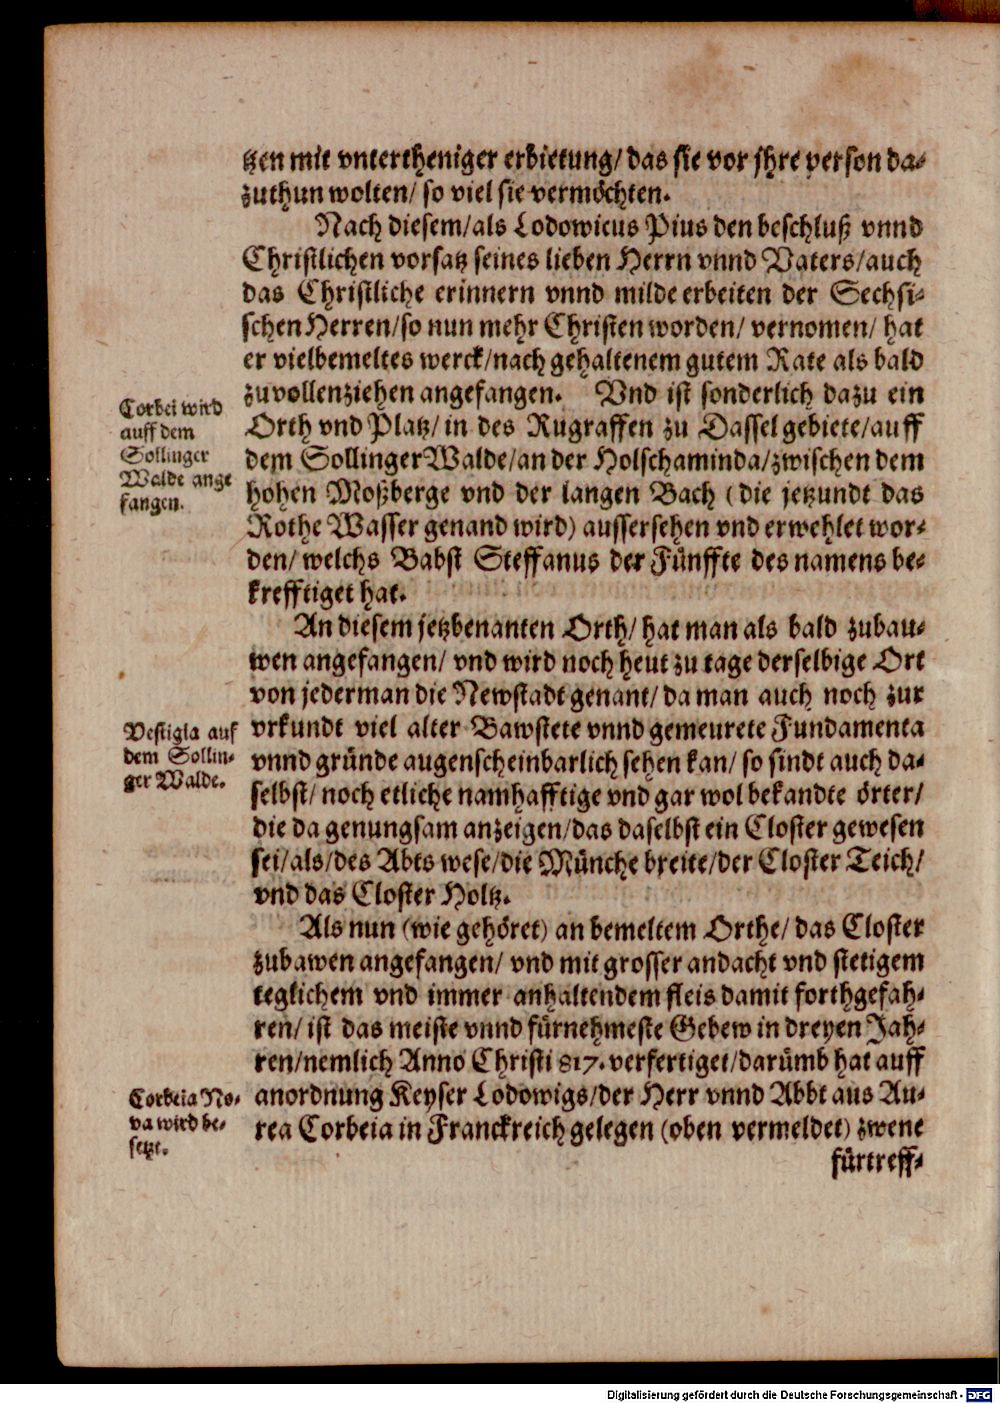 tzen mit vntertheniger erbietung/ das sie vor jhre person da-
zuthun wolten/ so viel sie vermöchten.
Nach diesem/als Lodowicus Pius den beschluß vnnd
Christlichen vorsatz seines lieben Herrn vnnd Vaters/auch
das Christliche erinnern vnnd milde erbeiten der Sechsi-
schen Herren/so nun mehr Christen worden/ vernomen/ hat
er vielbemeltes werck/nach gehaltenem gutem Rate als bald
zuvollenziehen angefangen. Vnd ist sonderlich dazu ein
Orth vnd Platz/ in des Rugraffen zu Dassel gebiete/auff
dem Sollinger Walde/an der Holschaminda/zwischen dem
hohen Moßberge vnd der langen Bach (die jetzundt das
Rothe Wasser genand wird) aussersehen vnd erwehlet wor-
den/ welchs Babst Steffanus der Fünffte des namens be-
krefftiget hat.
Corbei wird
auff dem
Sollinger
Walde ange
fangen.
An diesem jetzbenanten Orth/ hat man als bald zubau-
wen angefangen/ vnd wird noch heut zu tage derselbige Ort
von jederman die Newstadt genant/ da man auch noch zur
vrkundt viel alter Bawstete vnnd gemeurete Fundamenta
vnnd gründe augenscheinbarlich sehen kan/ so sindt auch da-
selbst/ noch etliche namhafftige vnd gar wol bekandte örter/
die da genungsam anzeigen/das daselbst ein Closter gewesen
sei/als/des Abts wese/die Münche breite/der Closter Teich/
vnd das Closter Holtz.
Vestigia auf
dem Sollin-
ger Walde.
Als nun (wie gehöret) an bemeltem Orthe/ das Closter
zubawen angefangen/ vnd mit grosser andacht vnd stetigem
teglichem vnd immer anhaltendem fleis damit forthgefah-
ren/ ist das meiste vnnd fürnehmeste Gebew in dreyen Jah-
ren/nemlich Anno Christi 817. verfertiget/darümb hat auff
anordnung Keyser Lodowigs/der Herr vnnd Abbt aus Au-
rea Corbeia in Franckreich gelegen (oben vermeldet) zwene
Corbeia No-
va wird be-
setzt.
fürtreff-
Digitalisierung gefördert durch die Deutsche Forschungsgemeinschaft - DFG